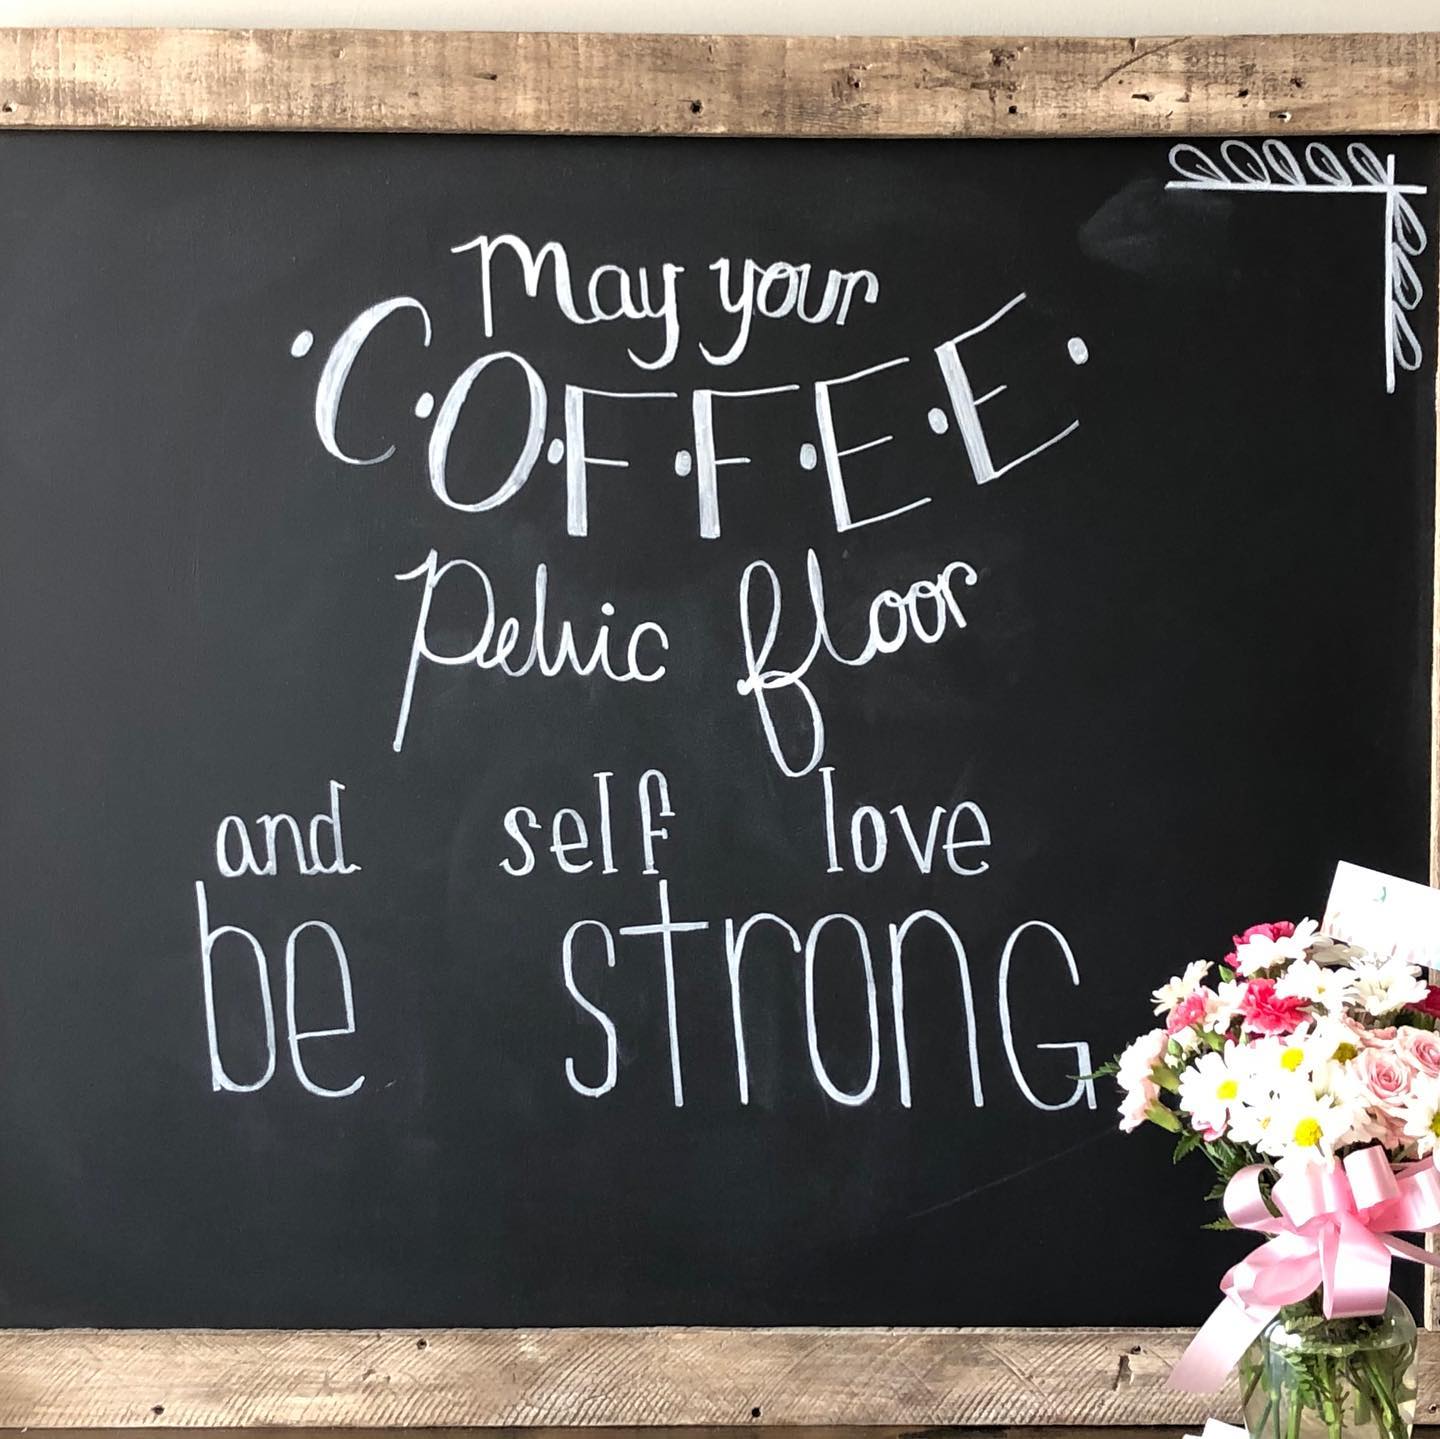 May your
·C·O·F·F·E·E·
Pelvic floor
and self love
be strong